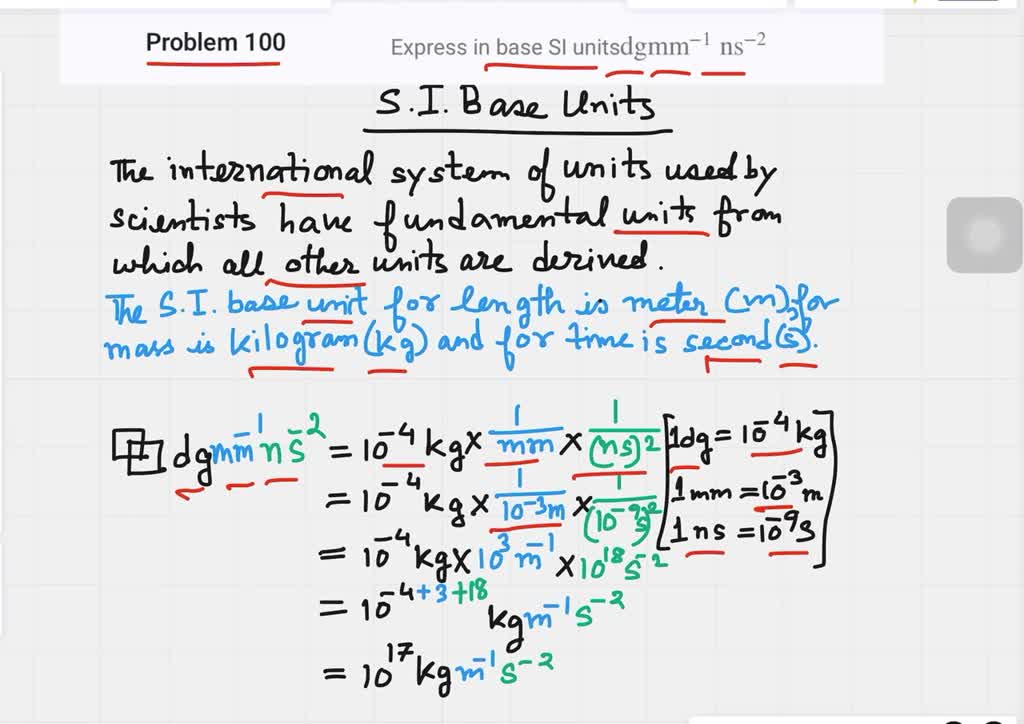 Problem 100
Express in base SI unitsdgmm⁻¹ ns⁻²
S.I. Base Units
The international system of units used by
scientists have fundamental units from
which all other units are derived.
The S.I. base unit for length is meter (m), for
mass is kilogram (kg) and for time is second (s).
dgmm⁻¹ns⁻² = 10⁻⁴ kg × 1/mm × 1/(ns)²
= 10⁻⁴ kg × 1/10⁻³m × 1/(10⁻⁹s)²
= 10⁻⁴ kg × 10³ m⁻¹ × 10¹⁸ s⁻²
= 10⁻⁴⁺³⁺¹⁸ kg m⁻¹ s⁻²
= 10¹⁷ kg m⁻¹ s⁻²
[1dg = 10⁻⁴ kg
1mm = 10⁻³ m
1ns = 10⁻⁹ s]